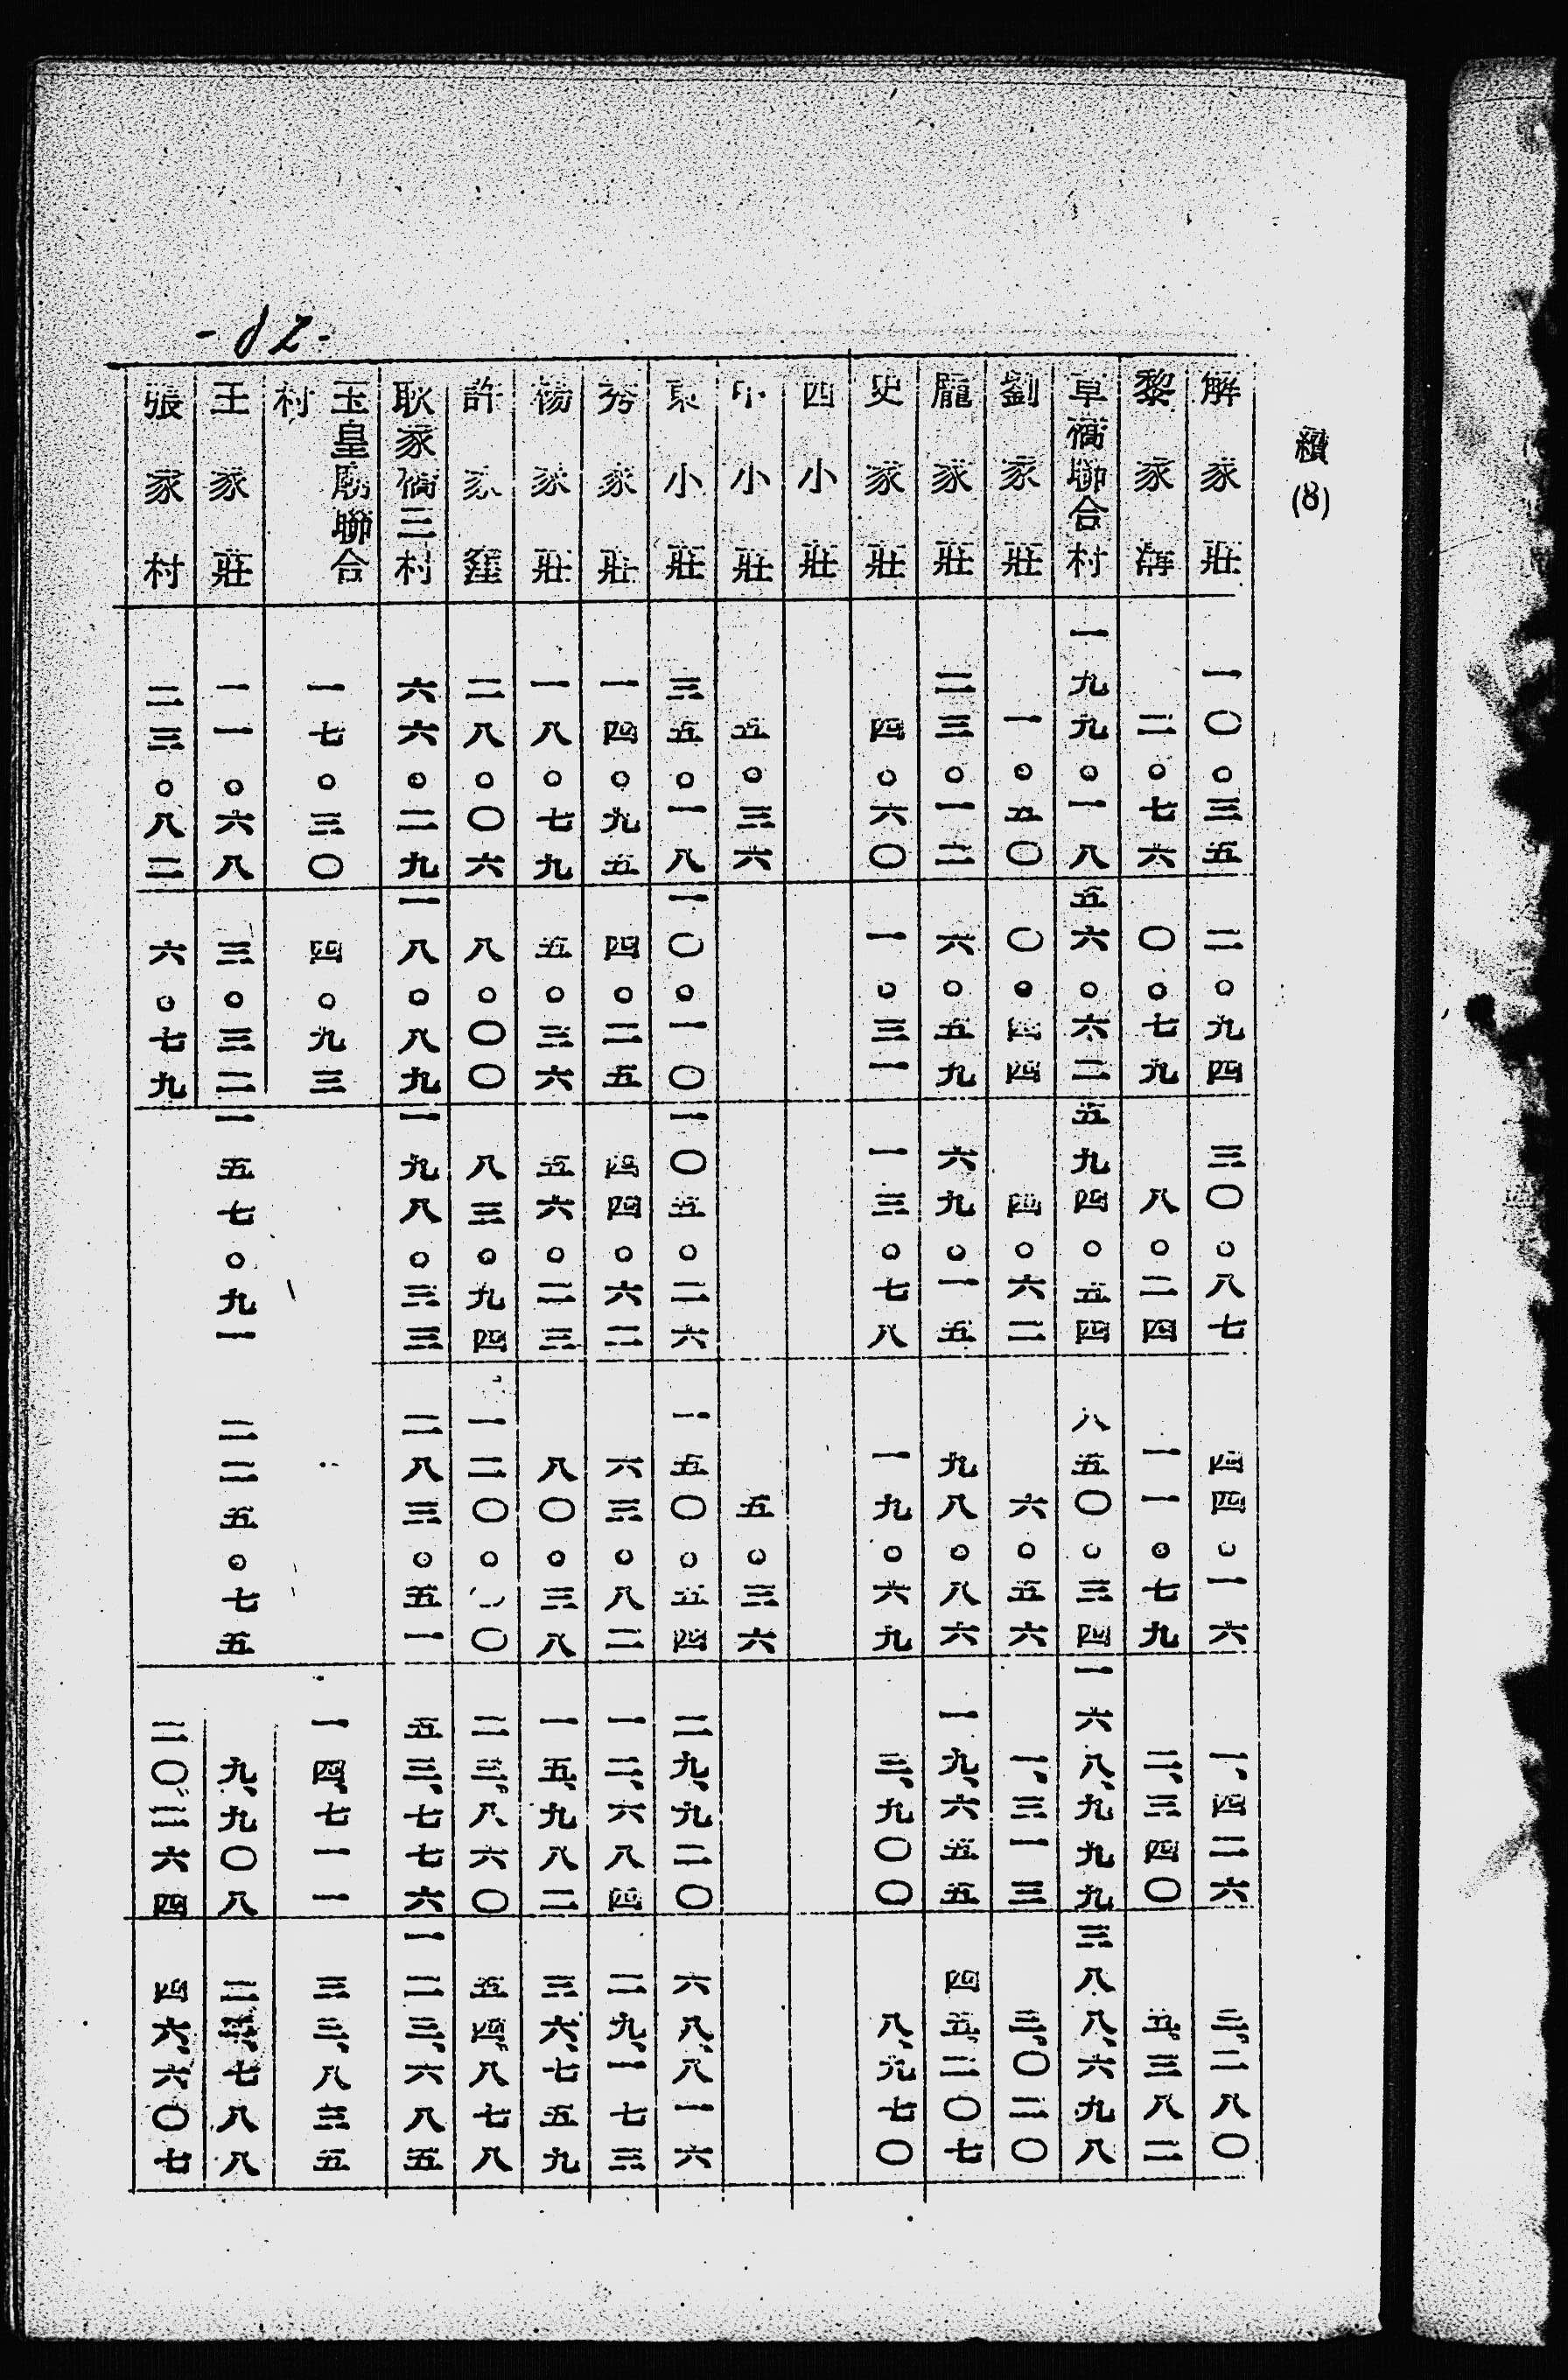 續(8)
解家莊 一〇。三五 二。九四 三〇。八七 四四。一六 一、四二六 三、二八〇
黎家溝 二。七六 〇。七九 八。二四 一一。七九 二、三四〇 五、三八二
草橋聯合村 一九九。一八 五六。六二 五九四。五四 八五〇。三四 一六八、九九九 三八八、六九八
劉家莊 一。五〇 〇。四四 四。六二 六。五六 一、三一三 三、〇二〇
龐家莊 二三。一二 六。五九 六九。一五 九八。八六 一九、六五五 四五、二〇七
史家莊 四。六〇 一。三一 一三。七八 一九。六九 三、九〇〇 八、九七〇
四小莊
小莊 五。三六 五。三六
東小莊 三五。一八 一〇。一〇 一〇五。二六 一五〇。五四 二九、九二〇 六八、八一六
家莊 一四。九五 四。二五 四四。六二 六三。八二 一二、六八四 二九、一七三
楊家莊 一八。七九 五。三六 五六。二三 八〇。三八 一五、九八二 三六、七五九
許家窪 二八。〇六 八。〇〇 八三。九四 一二〇。〇〇 二三、八六〇 五四、八七八
耿家橋三村 六六。二九 一八。八九 一九八。三三 二八三。五一 五三、七七六 一二三、六八五
玉皇廟聯合村 一七。三〇 四。九三 一四、七一一 三三、八三五
王家莊 一一。六八 三。三二 一五七。九一 二二五。七五 九、九〇八 二、七八八
張家村 二三。八二 六。七九 二〇、二六四 四六、六〇七
-82-